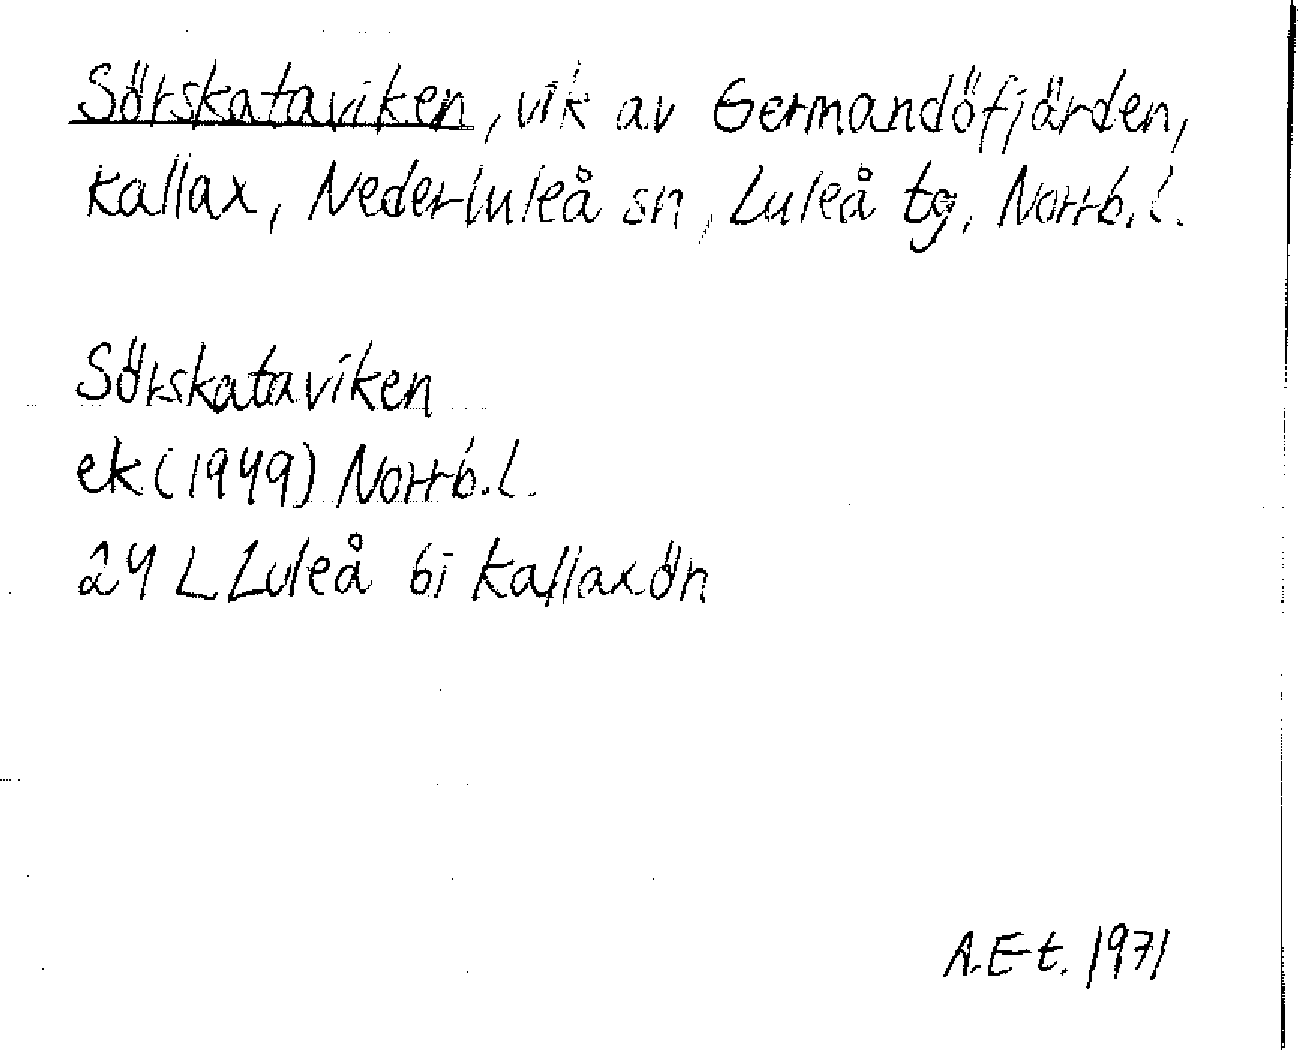 Sörskataviken, vik av Germandöfjärden,
Kallax, Nederluleå sn, Luleå tg, Norrb.l.
Sörskataviken
ek (1949) Norrb.l.
24 L Luleå 6i Kallaxön
A.E-t. 1971